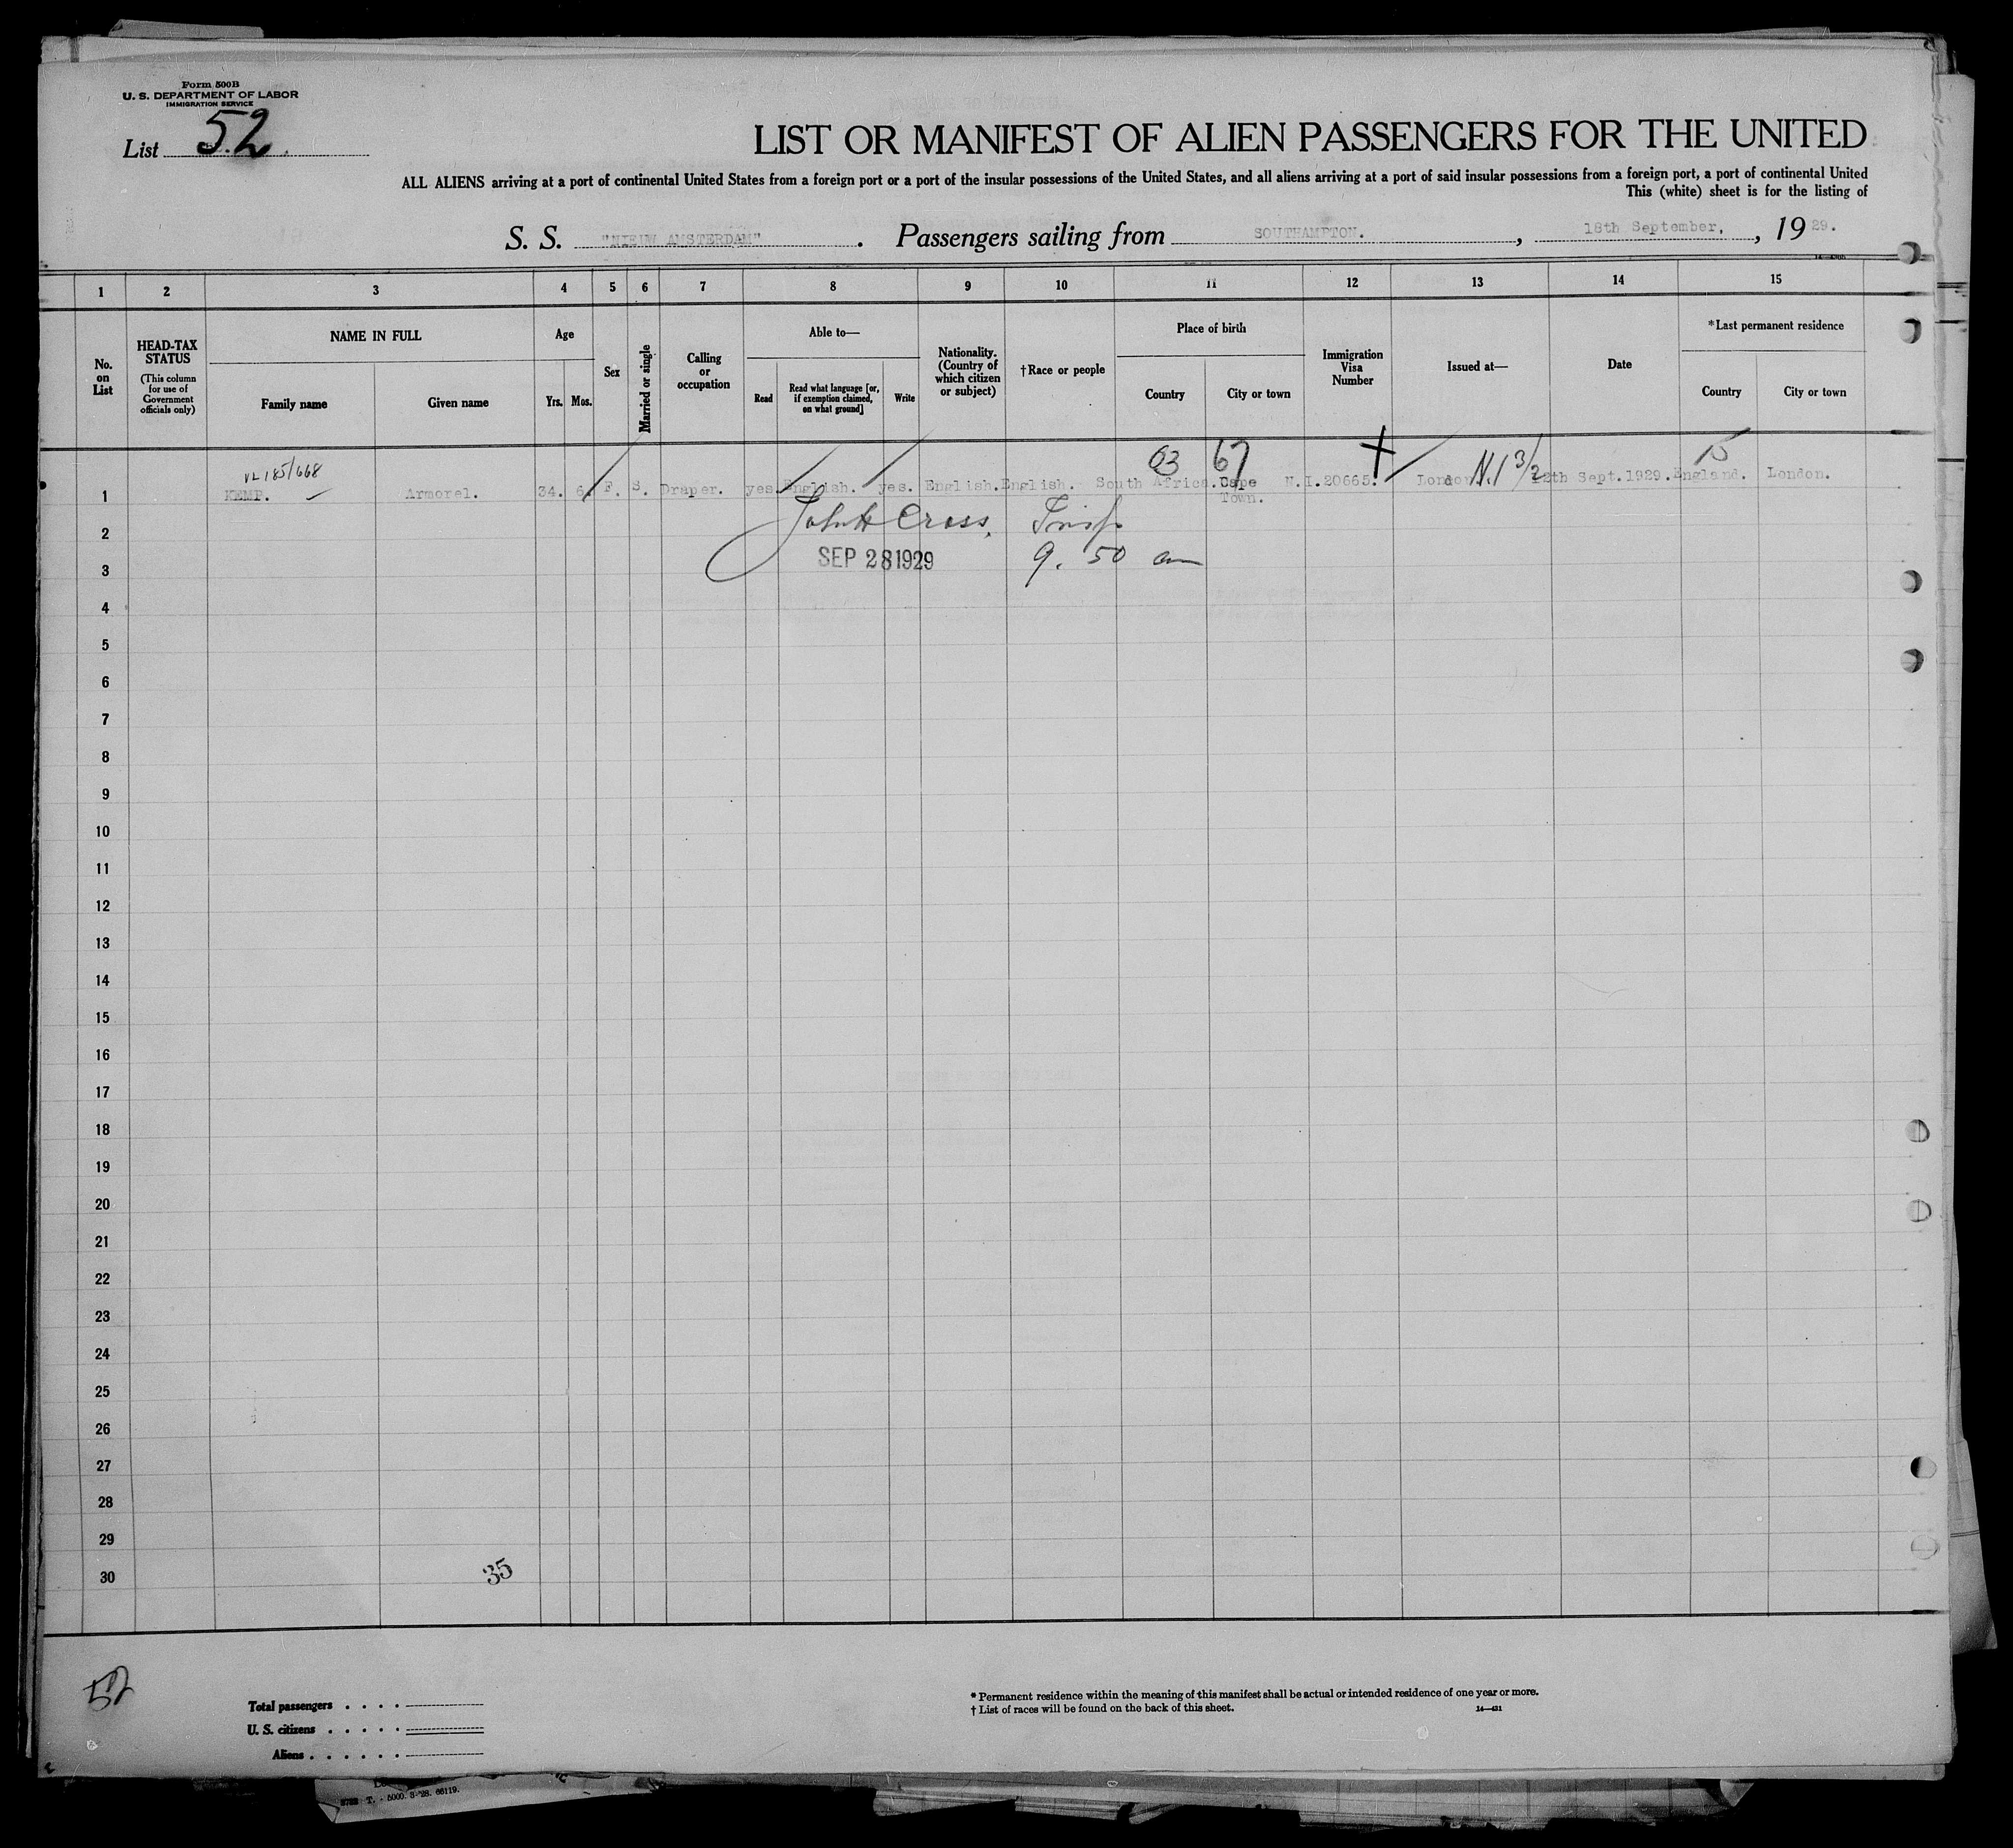 Form 500B
U. S. DEPARTMENT OF LABOR
IMMIGRATION SERVICE
List 52
LIST OR MANIFEST OF ALIEN PASSENGERS FOR THE UNITED
ALL ALIENS arriving at a port of continental United States from a foreign port or a port of the insular possessions of the United States, and all aliens arriving at a port of said insular possessions from a foreign port, a port of continental United
This (white) sheet is for the listing of
S. S. "NIEUW AMSTERDAM". Passengers sailing from SOUTHAMPTON., 18th September, , 19 29.
1 2 3 4 5 6 7 8 9 10 11 12 13 14 15
No. on List
HEAD-TAX STATUS
(This column for use of Government officials only)
NAME IN FULL
Family name
Given name
Age
Yrs. Mos.
Sex
Married or single
Calling or occupation
Able to—
Read
Read what language [or, if exemption claimed, on what ground]
Write
Nationality. (Country of which citizen or subject)
†Race or people
Place of birth
Country
City or town
Immigration Visa Number
Issued at—
Date
*Last permanent residence
Country
City or town
63 67 15
1 KEMP. Armorel. 34. 6. F. S. Draper. yes. English. yes. English. English. South Africa. Cape Town. N.I.20665. London. 12th Sept.1929. England. London.
2 John H Cross, Insp
3 SEP 28 1929 9.50 am
4
5
6
7
8
9
10
11
12
13
14
15
16
17
18
19
20
21
22
23
24
25
26
27
28
29
30
35
52
Total passengers . . . .
U. S. citizens . . . . .
Aliens . . . . . .
* Permanent residence within the meaning of this manifest shall be actual or intended residence of one year or more.
† List of races will be found on the back of this sheet.
14—431
T. - 5000. 3-'28. 66119.